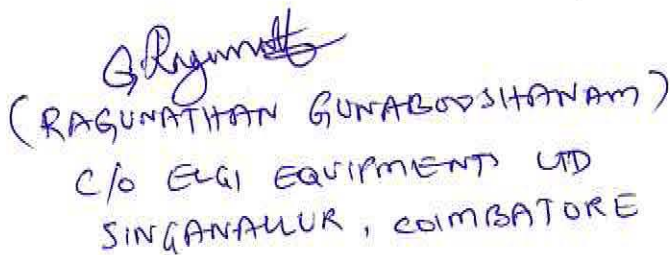 G. Ragunath
(RAGUNATHAN GUNABOOSHANAM)
C/o ELGI EQUIPMENTS LTD
SINGANALLUR, COIMBATORE